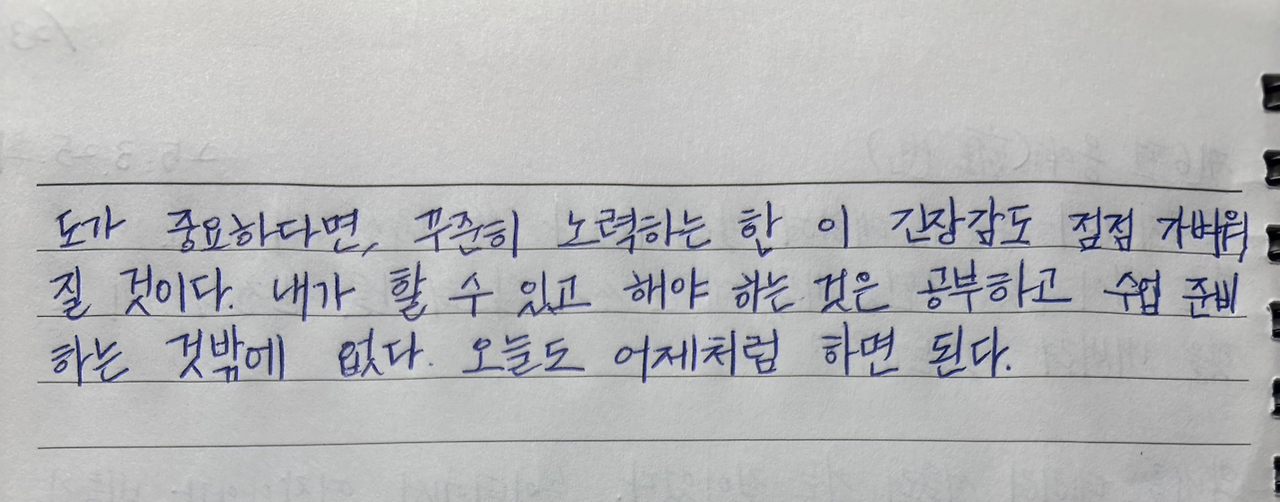 도가 중요하다면, 꾸준히 노력하는 한 이 긴장감도 점점 가벼워
질 것이다. 내가 할 수 있고 해야 하는 것은 공부하고 수업 준비
하는 것밖에 없다. 오늘도 어제처럼 하면 된다.